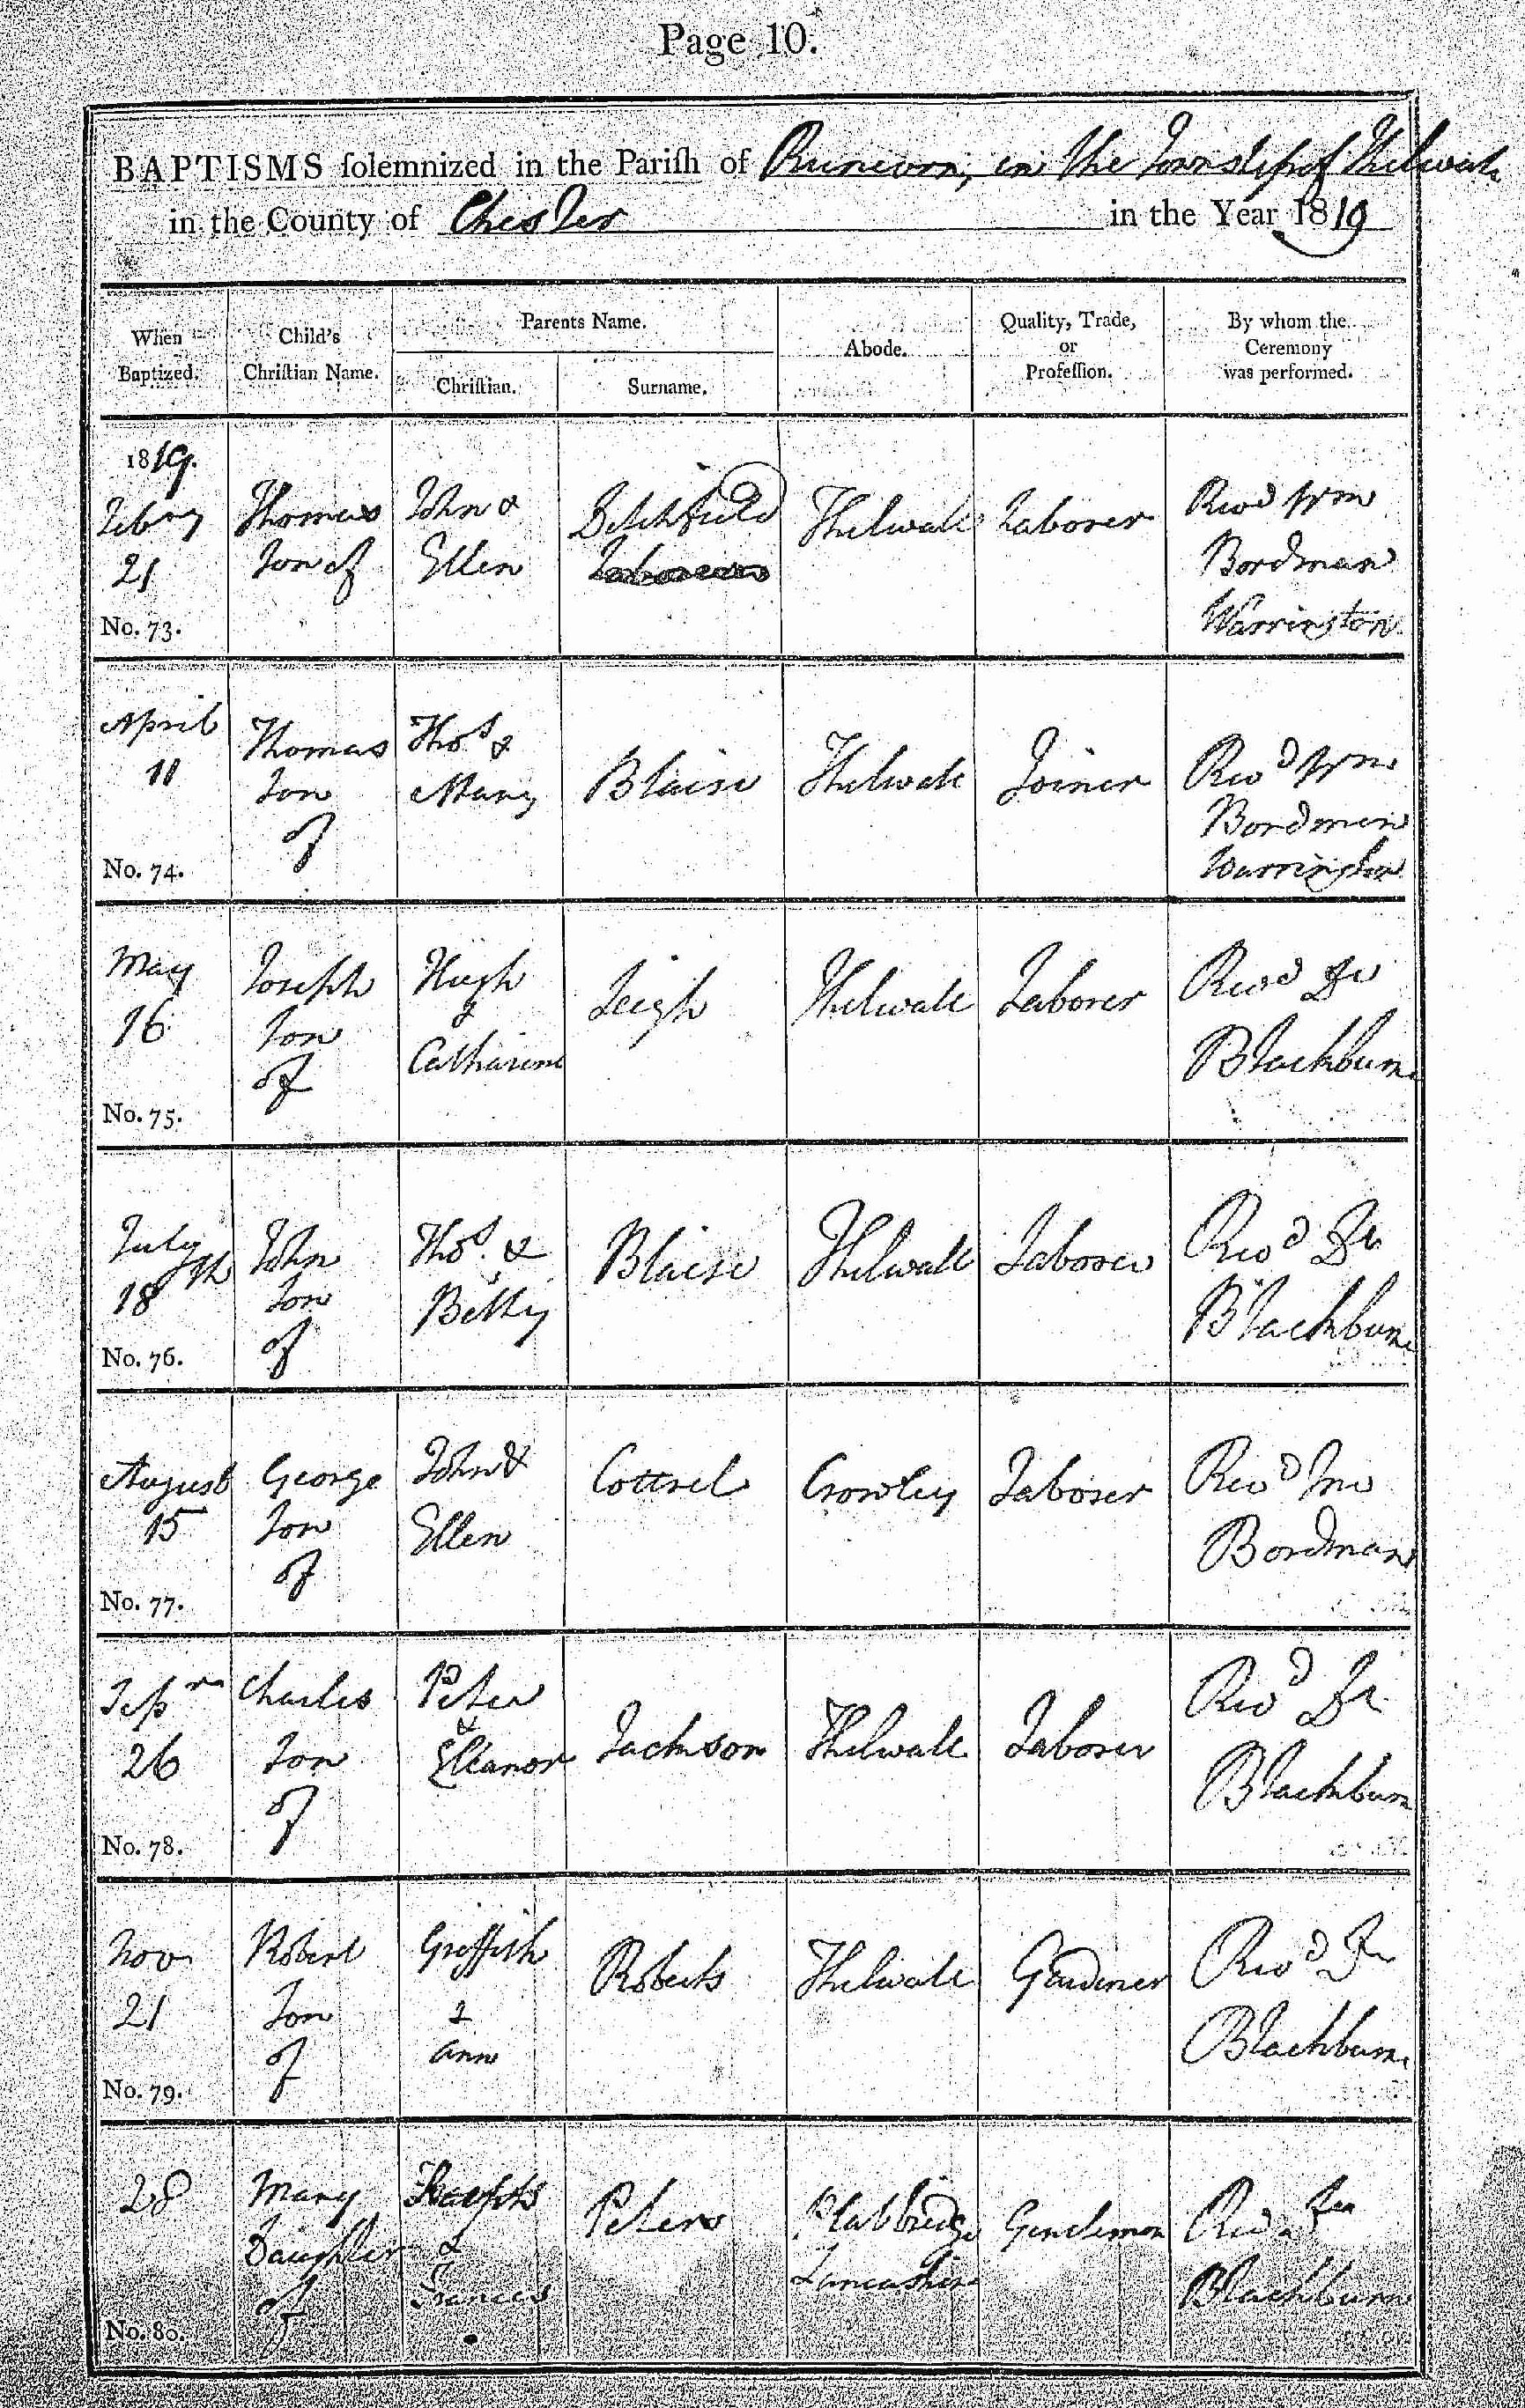 Page 10.
BAPTISMS ſolemnized in the Pariſh of Runcorn, in the Township of Thelwall
in the County of Chester in the Year 1819
When Baptized.
Child's Chriſtian Name.
Parents Name.
Chriſtian.
Surname.
Abode.
Quality, Trade, or Profeſſion.
By whom the Ceremony was performed.
1819.
Febry 21
No. 73.
Thomas Son of
John & Ellen
Thelwall
Laborer
Revd Wm Bordman Warrington
April 11
No. 74.
Thomas Son of
Thos & Mary
Blaise
Thelwall
Joiner
Revd Wm Bordman Warrington
May 16
No. 75.
Joseph Son of
Hugh & Catharine
Leigh
Thelwall
Laborer
Revd Dr Blackburne
July 18th
No. 76.
John Son of
Thos. & Betty
Blaise
Thelwall
Laborer
Revd Dr Blackburne
August 15
No. 77.
George Son of
John & Ellen
Cottrel
Crowley
Laborer
Revd Bordman
Sepr 26
No. 78.
Charles Son of
Peter & Elleanor
Jackson
Thelwall
Laborer
Revd Dr Blackburn
Nov 21
No. 79.
Robert Son of
Griffith & Ann
Roberts
Thelwall
Gardener
Revd Dr Blackburne
28
No. 80.
Mary Daughter of
& Frances
Peters
Lancashire
Gentleman
Revd Blackburne